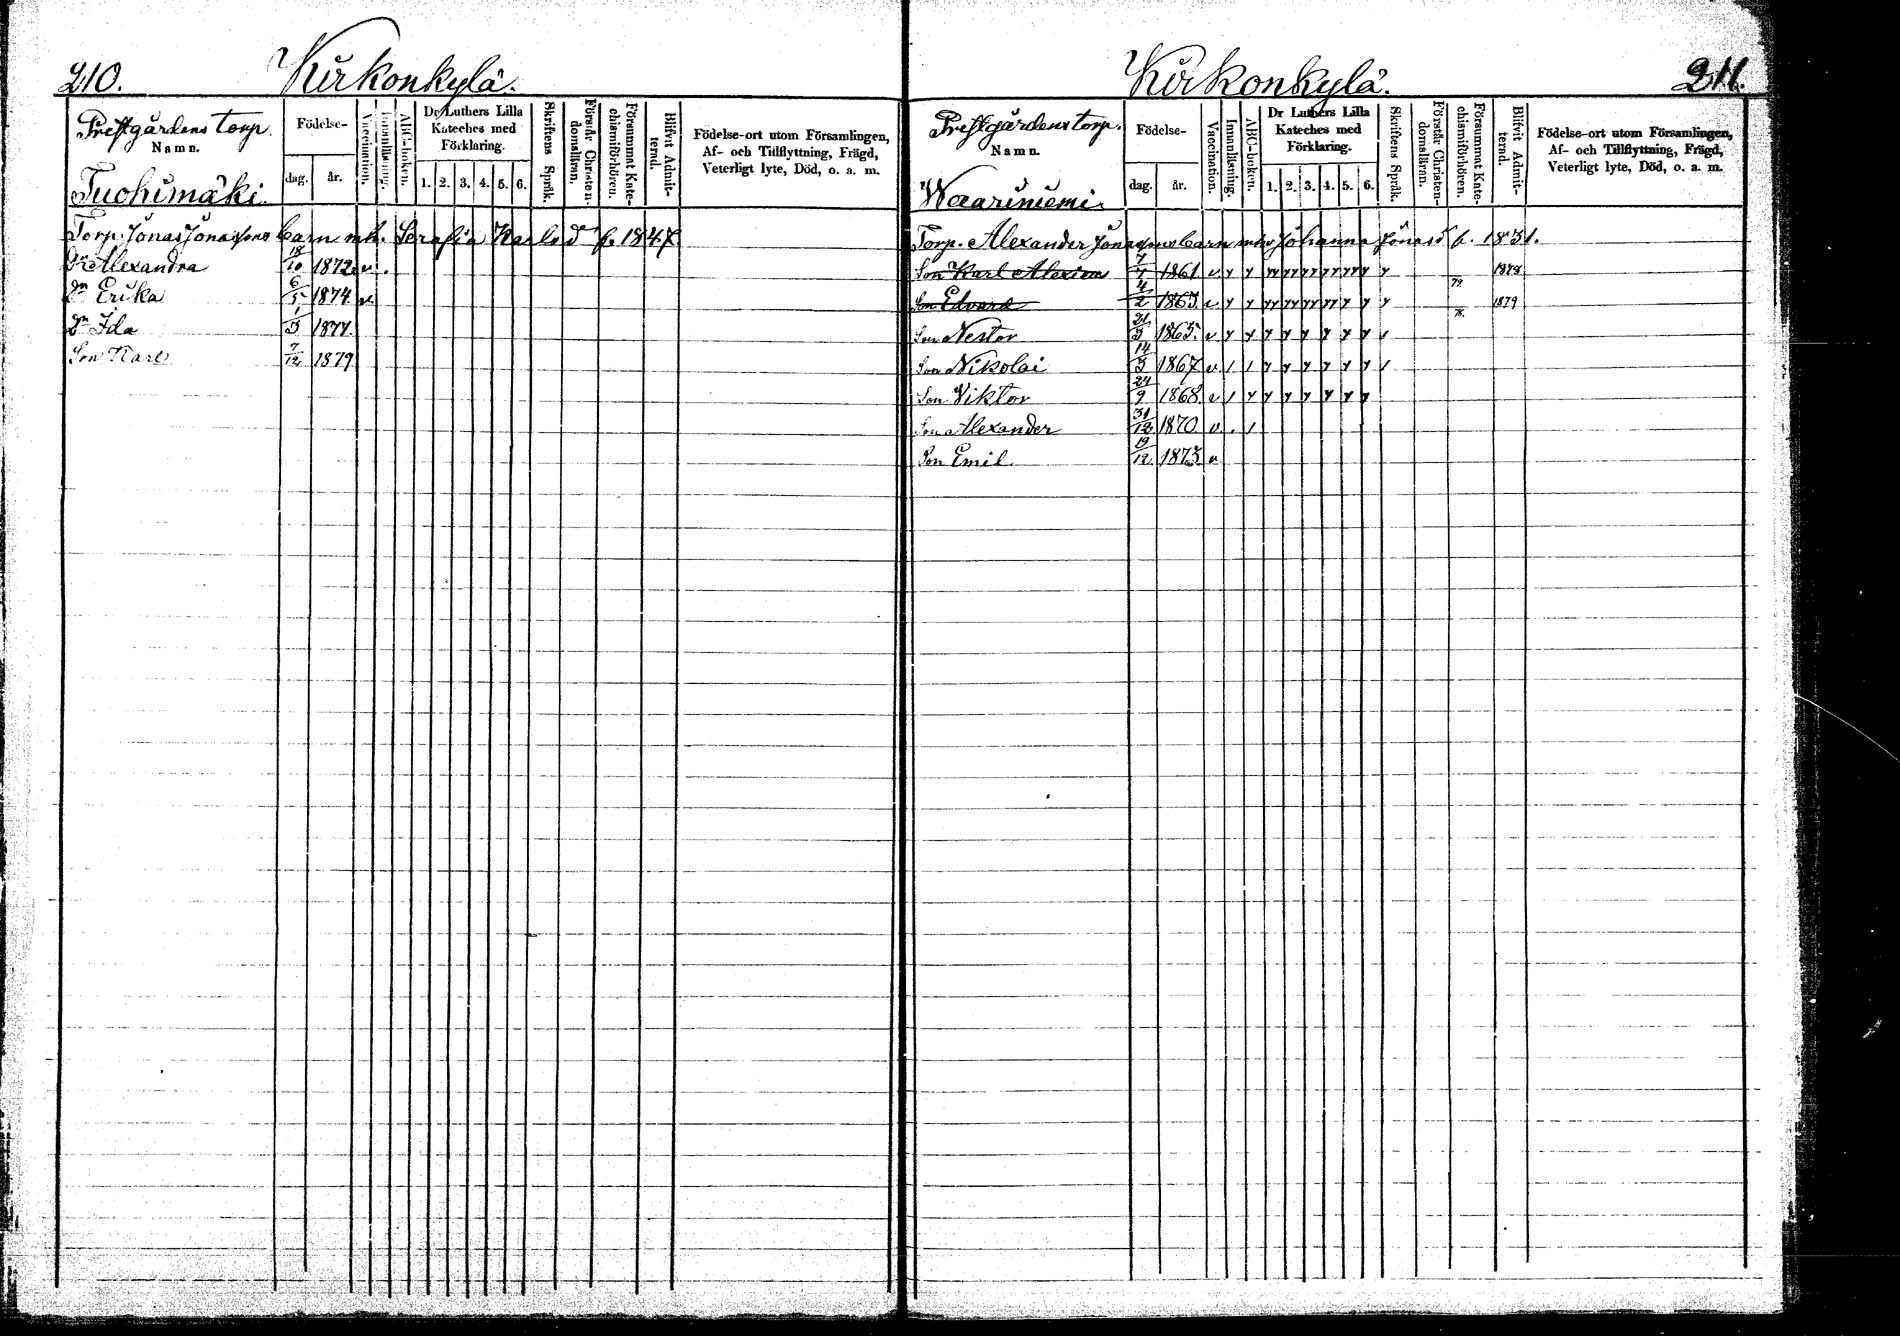 210.
Kirkonkylä.
Prestgårdens torp.
Namn.
Tuohimäki.
Födelse-
dag.
år.
Vaccination.
Innanläsning.
ABC-boken.
Dr Luthers Lilla
Kateches med
Förklaring.
1. 2. 3. 4. 5. 6.
Skriftens Språk.
Förstår Christen-
domsläran.
Försummat Kate-
chismiförhören.
Blifvit Admit-
terad.
Födelse-ort utom Församlingen,
Af- och Tillflyttning, Frägd,
Veterligt lyte, Död, o. a. m.
Torp. Jonas Jonassons barn mh. Serafia Karlsdr f. 1847
Dr Alexandra 18/10 1872 v .
Dr Erika 6/5 1874 v
Dr Ida 1/3 1877.
Son Karl 7/12 1879
Kirkonkylä.
211.
Prestgårdens torp.
Namn.
Waariniemi
Födelse-
dag.
år.
Vaccination.
Innanläsning.
ABC-boken.
Dr Luthers Lilla
Kateches med
Förklaring.
1. 2. 3. 4. 5. 6.
Skriftens Språk.
Förstår Christen-
domsläran.
Försummat Kate-
chismiförhören.
Blifvit Admit-
terad.
Födelse-ort utom Församlingen,
Af- och Tillflyttning, Frägd,
Veterligt lyte, Död, o. a. m.
Torp. Alexander Jonassons barn mh Johanna Jonasdr f. 1831.
Son Karl 1861 v 1878
Son Edvard 4/2 1863 v 1879
Son Nestor 21/3 1865 v
Son Nikolai 14/3 1867 v
Son Viktor 24/9 1868 v
Son Alexander 31/12 1870 v
Son Emil 19/12 1873 v